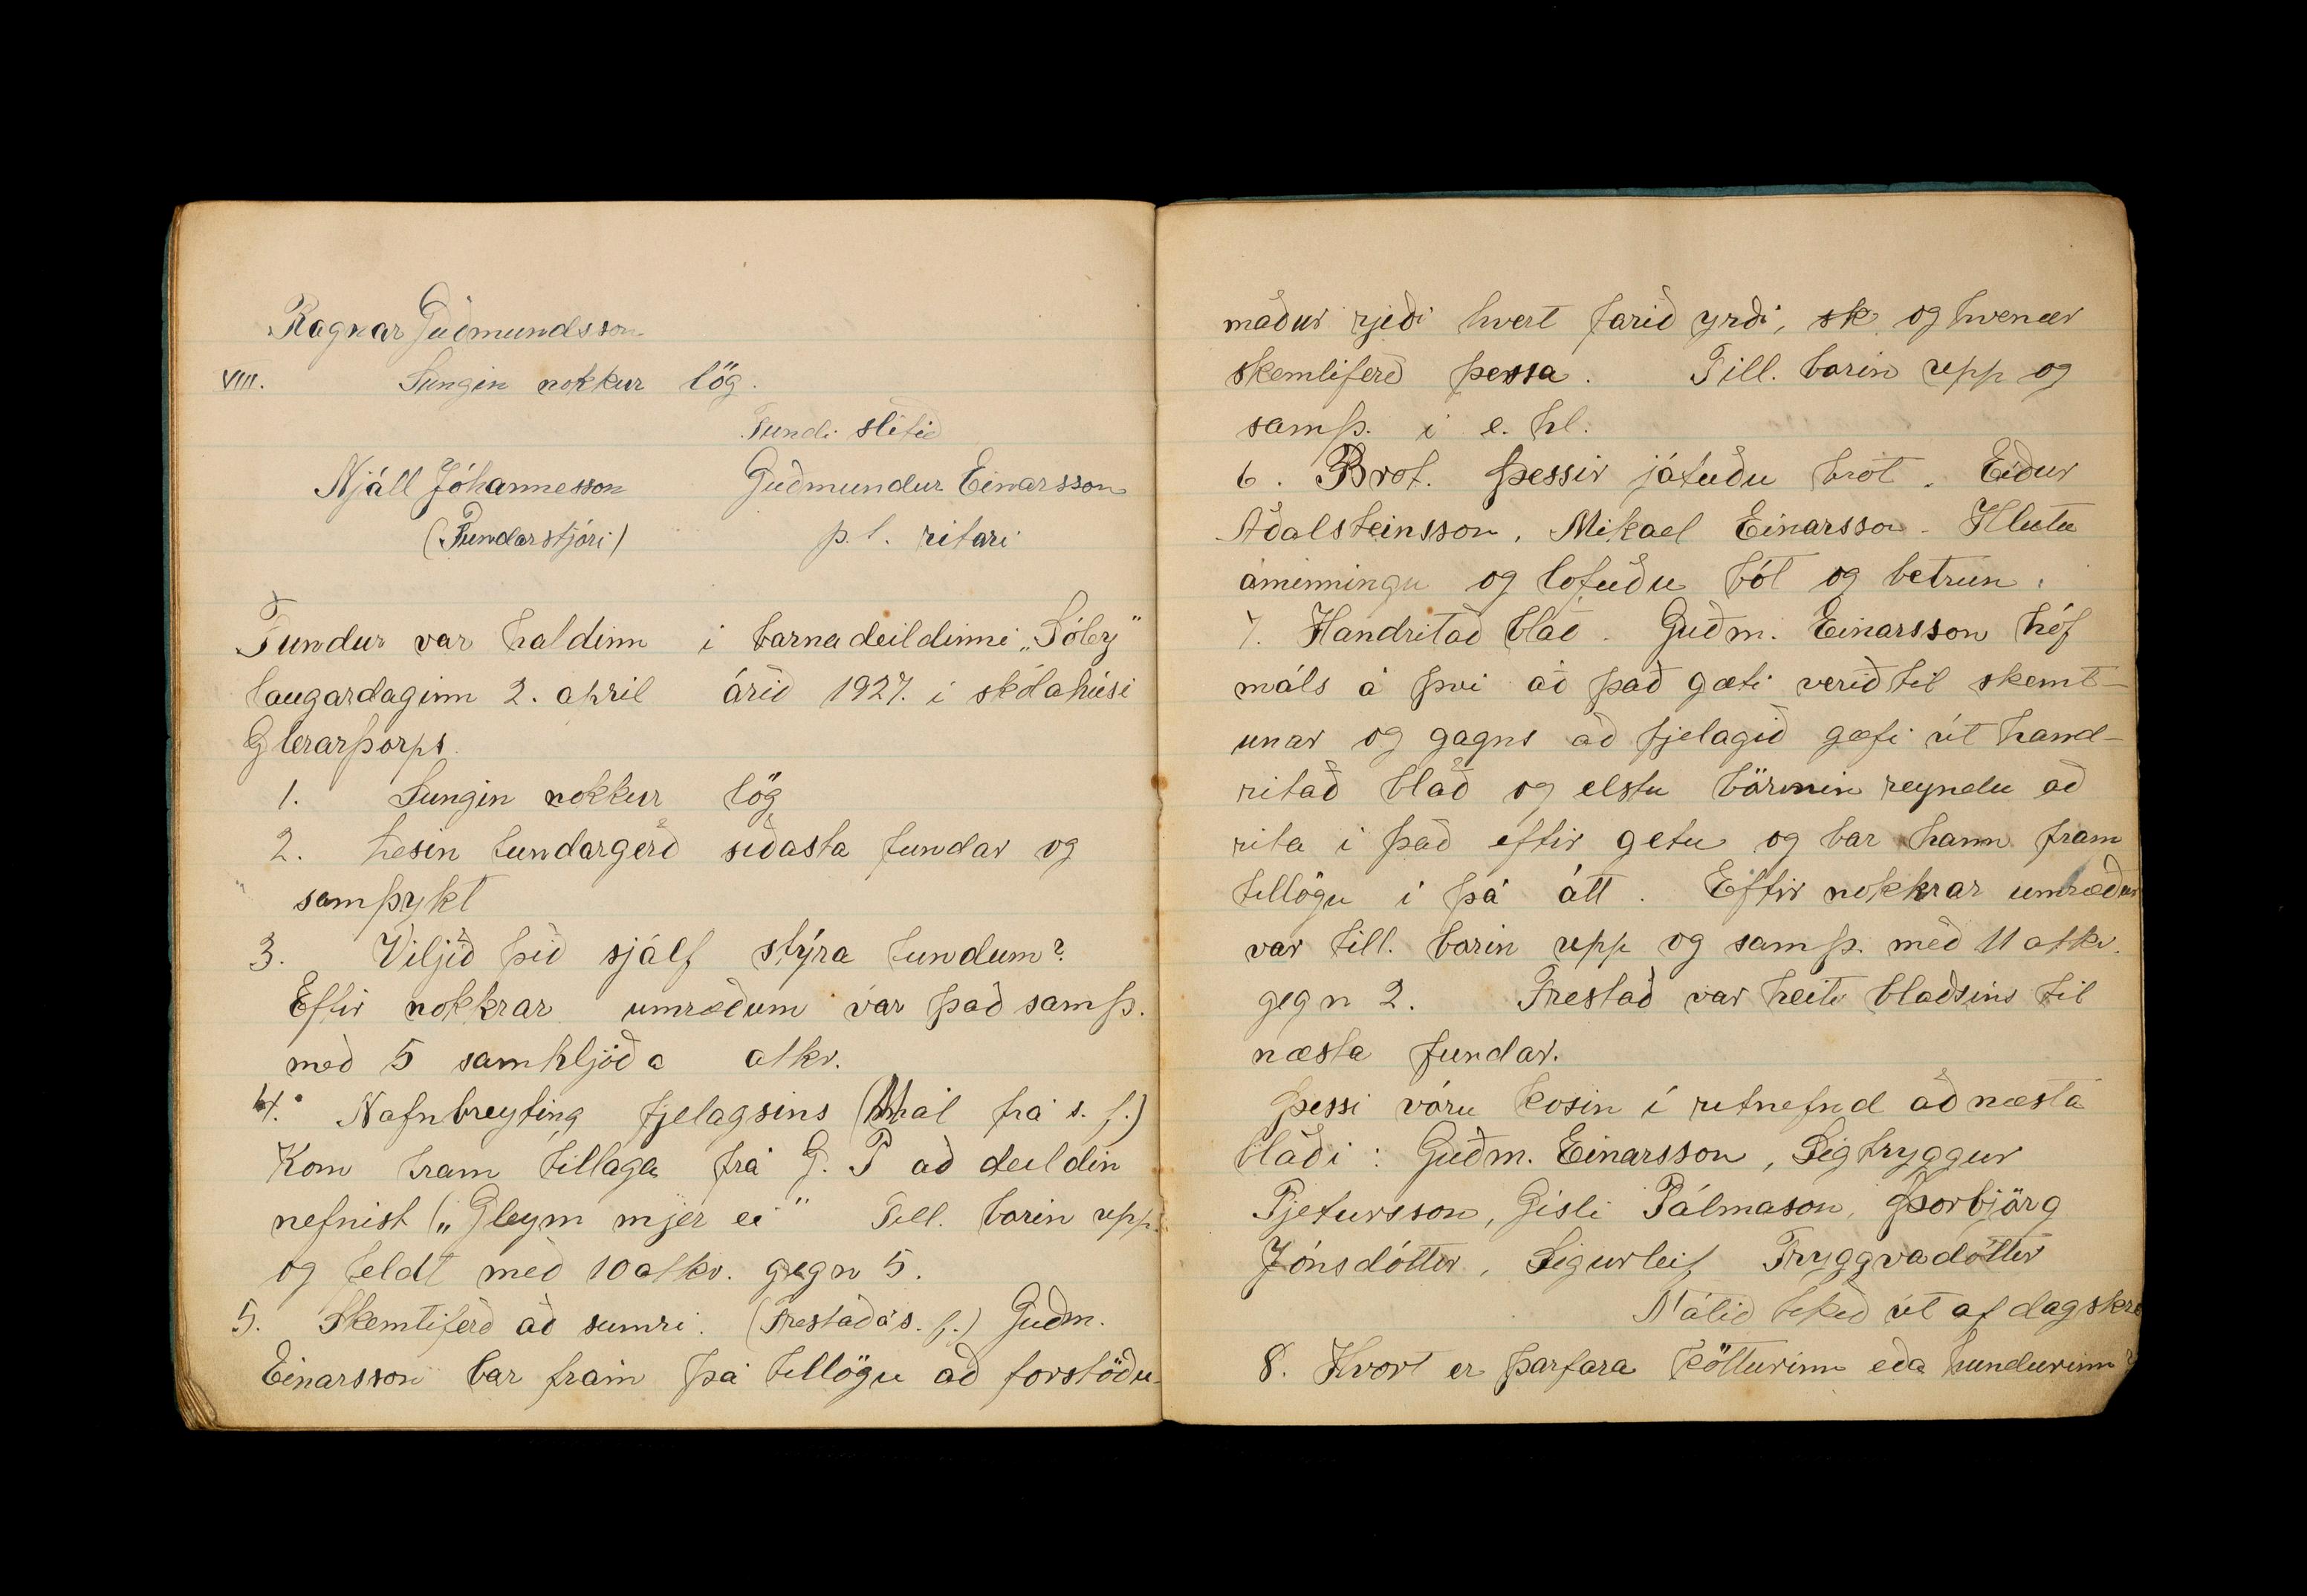 Ragnar Guðmundsson
VIII. Sungin nokkur lög.
Fundi slitið
Njáll Jóhannesson Guðmundur Einarsson
(Fundarstjóri) p.t. ritari
Fundur var haldinn í barnadeildinni „Sóley"
laugardaginn 2. apríl árið 1927. í skólahúsi
Glerarþorps.
1. Sungin nokkur lög
2. Lesin fundargerð síðasta fundar og
samþykt
3. Viljið þið sjálf stýra fundum?
Eftir nokkrar umræðum var það samþ.
með 5 samhljóða atkv.
4. Nafnbreyting fjelagsins (Mál frá s. f.)
Kom fram tillaga frá G. P að deildin
nefnist („Gleym mjer ei" Till. borin upp
og feldt með 10 atkv. gegn 5.
5. Skemtiferð að sumri. (Frestað á s. f.) Guðm.
Einarsson bar fram þá tillögu að forstöðu-
maður rjeði hvert farið yrði, sk og hvenær
skemtiferð þessa. Till. borin upp og
samþ. í e. hl.
6. Brot. Þessir játuðu brot. Eiður
Aðalsteinsson, Mikael Einarsson. Hlutu
áminningu og lofuðu bót og betrun.
7. Handritað blað. Guðm. Einarsson hóf
máls á því að það gæti verið til skemt-
unar og gagns að fjelagið gæfi út hand-
ritað blað og elstu börnin reyndu að
rita í það eftir getu og bar hann fram
tillögu í þá átt. Eftir nokkrar umræður
var till. borin upp og samþ. með 11 atkv.
gegn 2. Frestað var heiti blaðsins til
næsta fundar.
Þessi vóru kosin í ritnefnd að næsta
blaði: Guðm. Einarsson, Sigtryggur
Pjetursson, Gísli Pálmason, Þorbjörg
Jónsdóttir, Sigurleif Tryggvadóttir
Málið tekið út af dagskrá
8. Hvort er þarfara kötturinn eða hundurinn?